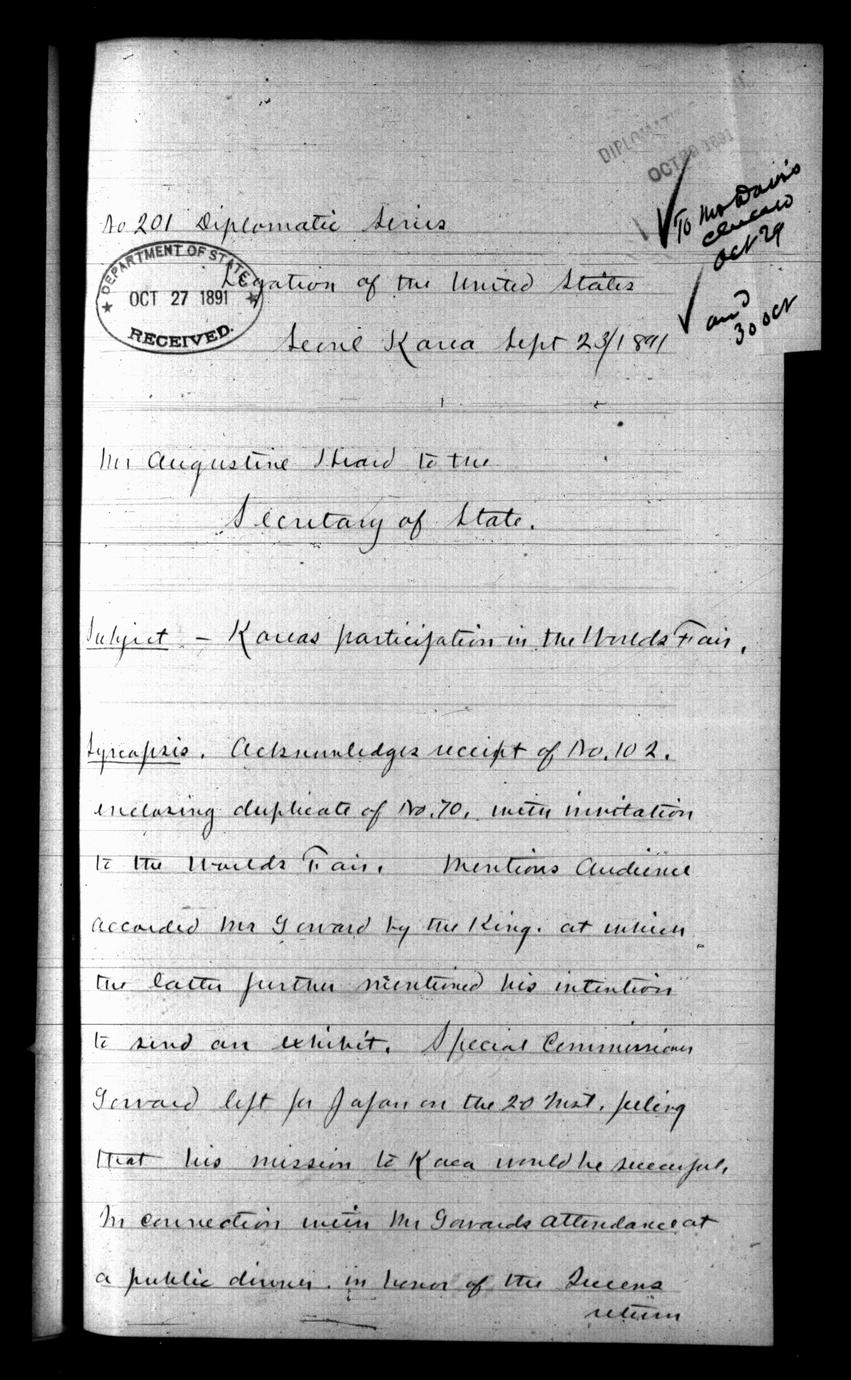 DIPLOMATIC
OCT 29 1891
To Mr Davis
Chicago
Oct 29
and
30 Oct
No 201 Diplomatic Series
DEPARTMENT OF STATE
OCT 27 1891
RECEIVED.
Legation of the United States
Seoul Korea Sept 23/1891
Mr Augustine Heard to the
Secretary of State.
Subject – Koreas participation in the Worlds Fair.
Synopsis. Acknowledges receipt of No. 102.
enclosing duplicate of No. 70. with invitation
to the Worlds Fair. Mentions Audience
accorded Mr Goward by the King. at which
the latter further mentioned his intention
to send an exhibit. Special Commissioner
Goward left for Japan on the 20 Inst. feeling
that his mission to Korea would be successful.
In connection with Mr Gowards attendance at
a public dinner. in honor of the
return